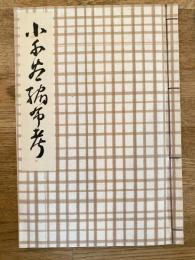 小千谷縮布考